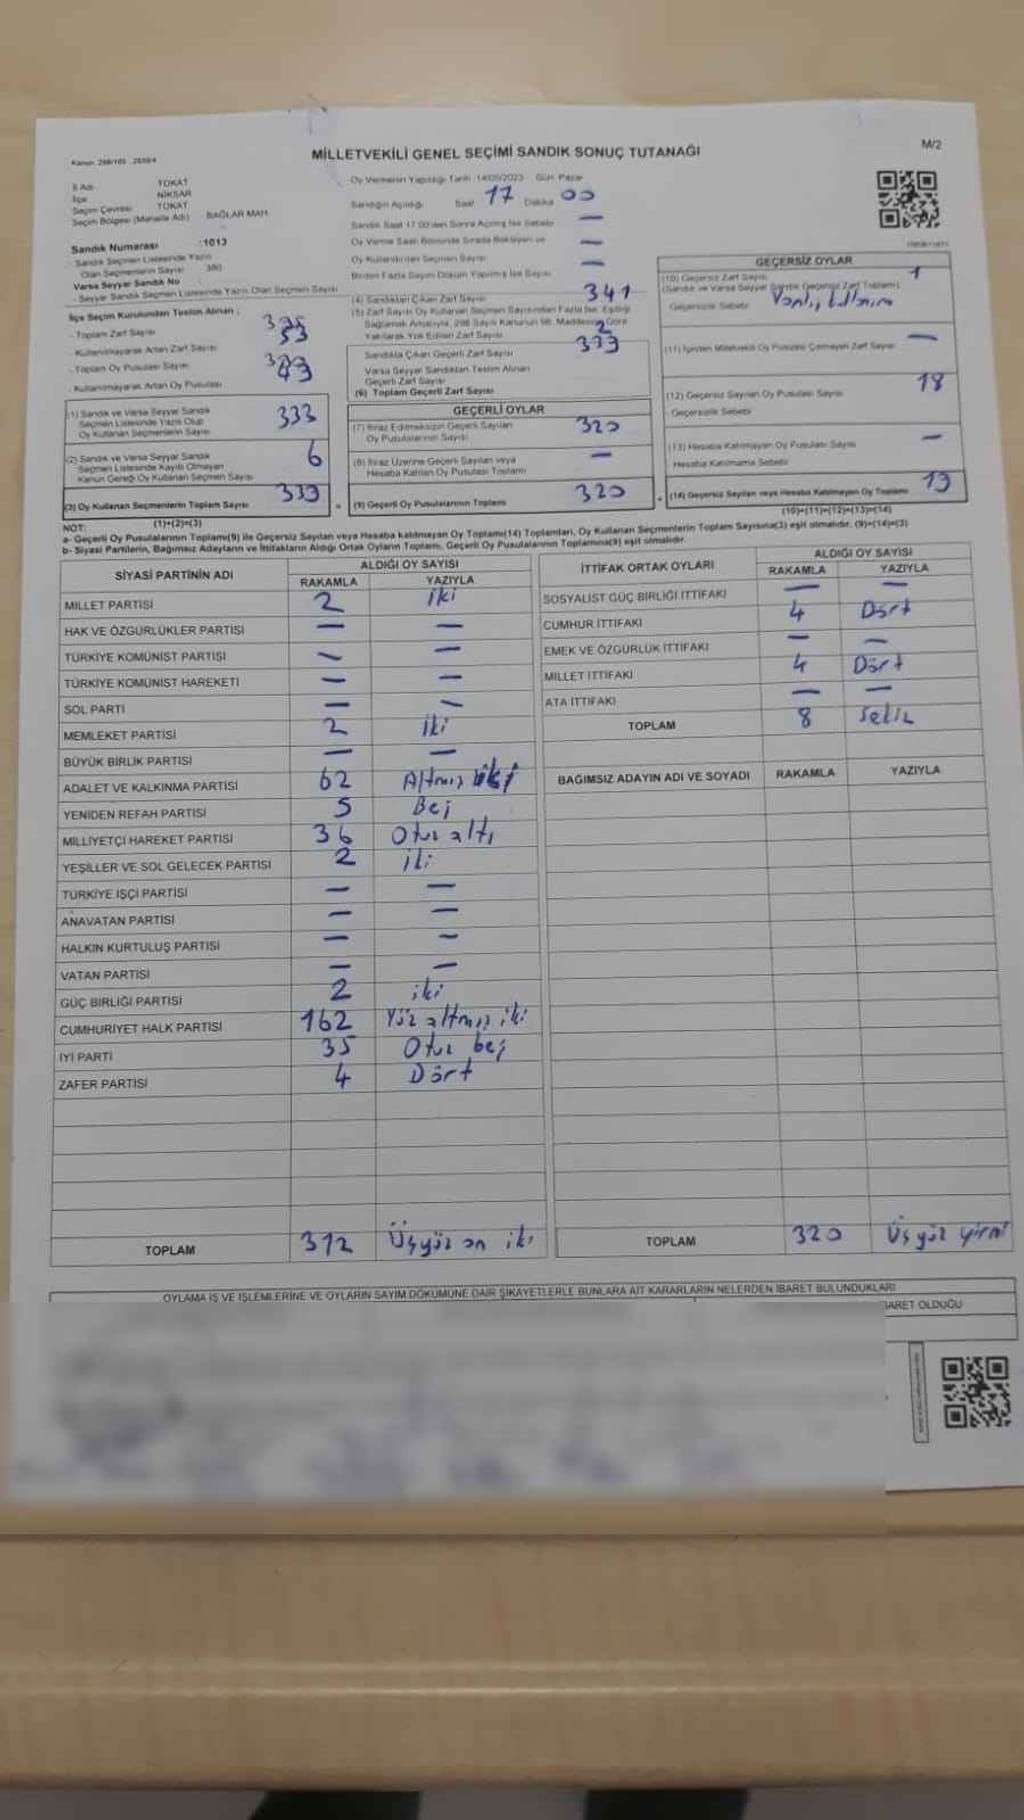 M/2
MİLLETVEKİLİ GENEL SEÇİMİ SANDIK SONUÇ TUTANAĞI
İl Adı TOKAT
İlçe NİKSAR
Seçim Çevresi TOKAT
Seçim Bölgesi (Mahalle Adı) BAĞLAR MAH.
Sandık Numarası :1013
Sandık Seçmen Listesinde Yazılı
Olan Seçmenlerin Sayısı
Varsa Seyyar Sandık No
- Seyyar Sandık Seçmen Listesinde Yazılı Olan Seçmen Sayısı
İlçe Seçim Kurulundan Teslim Alınan :
- Toplam Zarf Sayısı
- Kullanılmayarak Artan Zarf Sayısı 53
- Toplam Oy Pusulası Sayısı
- Kullanılmayarak Artan Oy Pusulası
(1) Sandık ve Varsa Seyyar Sandık
Seçmen Listesinde Yazılı Olup
Oy Kullanan Seçmenlerin Sayısı 333
(2) Sandık ve Varsa Seyyar Sandık
Seçmen Listesinde Kayıtlı Olmayan
Kanun Gereği Oy Kullanan Seçmen Sayısı 6
(3) Oy Kullanan Seçmenlerin Toplam Sayısı 339
(1)+(2)=(3)
Oy Vermenin Yapıldığı Tarih :14/05/2023 Gün: Pazar
Sandığın Açıldığı Saat 17 Dakika 00
Sandık Saat 17:00'den Sonra Açılmış İse Sebebi —
Oy Verme Saati Bitiminde Sırada Bekleyen ve —
Oy Kullandırılan Seçmen Sayısı
Birden Fazla Sayım Döküm Yapılmış İse Sayısı —
(4) Sandıktan Çıkan Zarf Sayısı 341
(5) Zarf Sayısı Oy Kullanan Seçmen Sayısından Fazla İse, Eşitliği
Sağlamak Amacıyla, 298 Sayılı Kanunun 98. Maddesine Göre
Yakılarak Yok Edilen Zarf Sayısı 2
Sandıkta Çıkan Geçerli Zarf Sayısı 339
Varsa Seyyar Sandıktan Teslim Alınan
Geçerli Zarf Sayısı
(6) Toplam Geçerli Zarf Sayısı
GEÇERLİ OYLAR
(7) İtiraz Edilmeksizin Geçerli Sayılan
Oy Pusulalarının Sayısı 320
(8) İtiraz Üzerine Geçerli Sayılan veya
Hesaba Katılan Oy Pusulası Toplamı —
(9) Geçerli Oy Pusulalarının Toplamı 320
GEÇERSİZ OYLAR
(10) Geçersiz Zarf Sayısı 1
(Sandık ve Varsa Seyyar Sandık Geçersiz Zarf Toplamı)
Geçersizlik Sebebi
(11) İçinden Milletvekili Oy Pusulası Çıkmayan Zarf Sayısı —
(12) Geçersiz Sayılan Oy Pusulası Sayısı 18
Geçersizlik Sebebi
(13) Hesaba Katılmayan Oy Pusulası Sayısı —
Hesaba Katılmama Sebebi
(14) Geçersiz Sayılan veya Hesaba Katılmayan Oy Toplamı 19
(10)+(11)+(12)+(13)=(14)
NOT:
a- Geçerli Oy Pusulalarının Toplamı(9) ile Geçersiz Sayılan veya Hesaba katılmayan Oy Toplamı(14) Toplamları, Oy Kullanan Seçmenlerin Toplam Sayısına(3) eşit olmalıdır. (9)+(14)=(3)
b- Siyasi Partilerin, Bağımsız Adayların ve İttifakların Aldığı Ortak Oyların Toplamı, Geçerli Oy Pusulalarının Toplamına(9) eşit olmalıdır.
SİYASİ PARTİNİN ADI ALDIĞI OY SAYISI
RAKAMLA YAZIYLA
MİLLET PARTİSİ 2 iki
HAK VE ÖZGÜRLÜKLER PARTİSİ — —
TÜRKİYE KOMÜNİST PARTİSİ — —
TÜRKİYE KOMÜNİST HAREKETİ — —
SOL PARTİ — —
MEMLEKET PARTİSİ 2 iki
BÜYÜK BİRLİK PARTİSİ — —
ADALET VE KALKINMA PARTİSİ 62 Altmış iki
YENİDEN REFAH PARTİSİ 5 Beş
MİLLİYETÇİ HAREKET PARTİSİ 36 Otuz altı
YEŞİLLER VE SOL GELECEK PARTİSİ 2 iki
TÜRKİYE İŞÇİ PARTİSİ — —
ANAVATAN PARTİSİ — —
HALKIN KURTULUŞ PARTİSİ — —
VATAN PARTİSİ — —
GÜÇ BİRLİĞİ PARTİSİ 2 iki
CUMHURİYET HALK PARTİSİ 162 Yüz altmış iki
İYİ PARTİ 35 Otuz beş
ZAFER PARTİSİ 4 Dört
TOPLAM 312 Üçyüz on iki
İTTİFAK ORTAK OYLARI ALDIĞI OY SAYISI
RAKAMLA YAZIYLA
SOSYALİST GÜÇ BİRLİĞİ İTTİFAKI — —
CUMHUR İTTİFAKI 4 Dört
EMEK VE ÖZGÜRLÜK İTTİFAKI — —
MİLLET İTTİFAKI 4 Dört
ATA İTTİFAKI — —
TOPLAM 8 sekiz
BAĞIMSIZ ADAYIN ADI VE SOYADI RAKAMLA YAZIYLA
TOPLAM 320 Üçyüz yirmi
OYLAMA İŞ VE İŞLEMLERİNE VE OYLARIN SAYIM DÖKÜMÜNE DAİR ŞİKAYETLERLE BUNLARA AİT KARARLARIN NELERDEN İBARET BULUNDUKLARI
BARET OLDUĞU